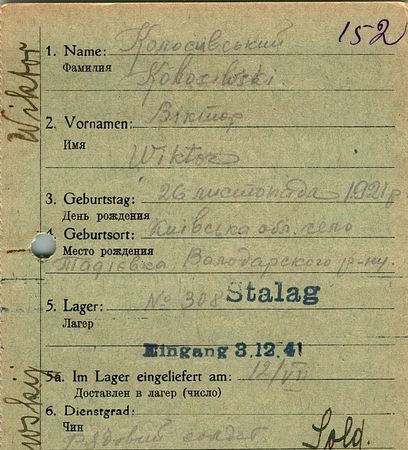 152
1. Name: Колосівський
Фамилия
2. Vornamen: Віктор
Имя
Wiktor
3. Geburtstag: 26 листопада 1921 р
День рождения
4. Geburtsort: Київська обл. село
Место рождения
Тадіевка Володарского р-ну.
5. Lager: № 308 Stalag
Лагер
Eingang 3.12.41
5a. Im Lager eingeliefert am: 12/VII
Доставлен в лагер (число)
6. Dienstgrad:
Чин
Рядовий солдат Sold.
Wiktor